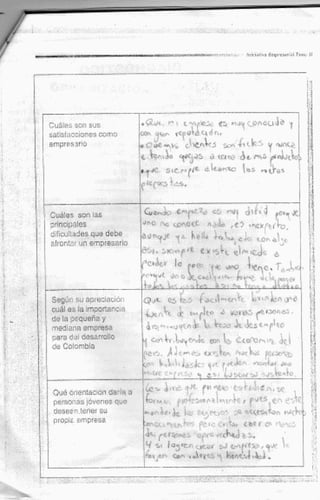 Iniciativa Empresarial
Cuáles son sus
satisfacciones como
empresario
• Que mi empresa es muy conocida y
con gran reputación.
• Que mis clientes son fieles y nunca
e tenido quejas a cerca de mis productos
• que siempre alcanzo las metas
propuestas.
Cuáles son las
principales
dificultades que debe
afrontar un empresario
Cuando empezo es muy dificil porque
uno no conoce nada, es inexperto,
aunque ya halla trabajado con algo
eso. siempre existe el miedo a
perder lo poco que uno tiene. También
porque uno
Según su apreciación
cuál es la importancia
de la pequeña y
mediana empresa
para del desarrollo
de Colombia
Que estas facilmente brindan una
fuente de empleo a varias personas.
disminuyendo la tasa de desempleo
y contribuyendo con la economia del
pais. Ademas existen muchas personas
con habilidades que pueden montar una
empresa y asi buscar su sustento.
Qué orientación daría a
personas jóvenes que
deseen tener su
propia empresa
Les digo que primero estudien, se
formen profesionalmente, pues en este
mundo de los negocios se necesitan muchos
conocimientos para evitar caer en manos
de personas aprovechadas.
Y si logran crear su empresa, que la
forjen con valores y honestidad.